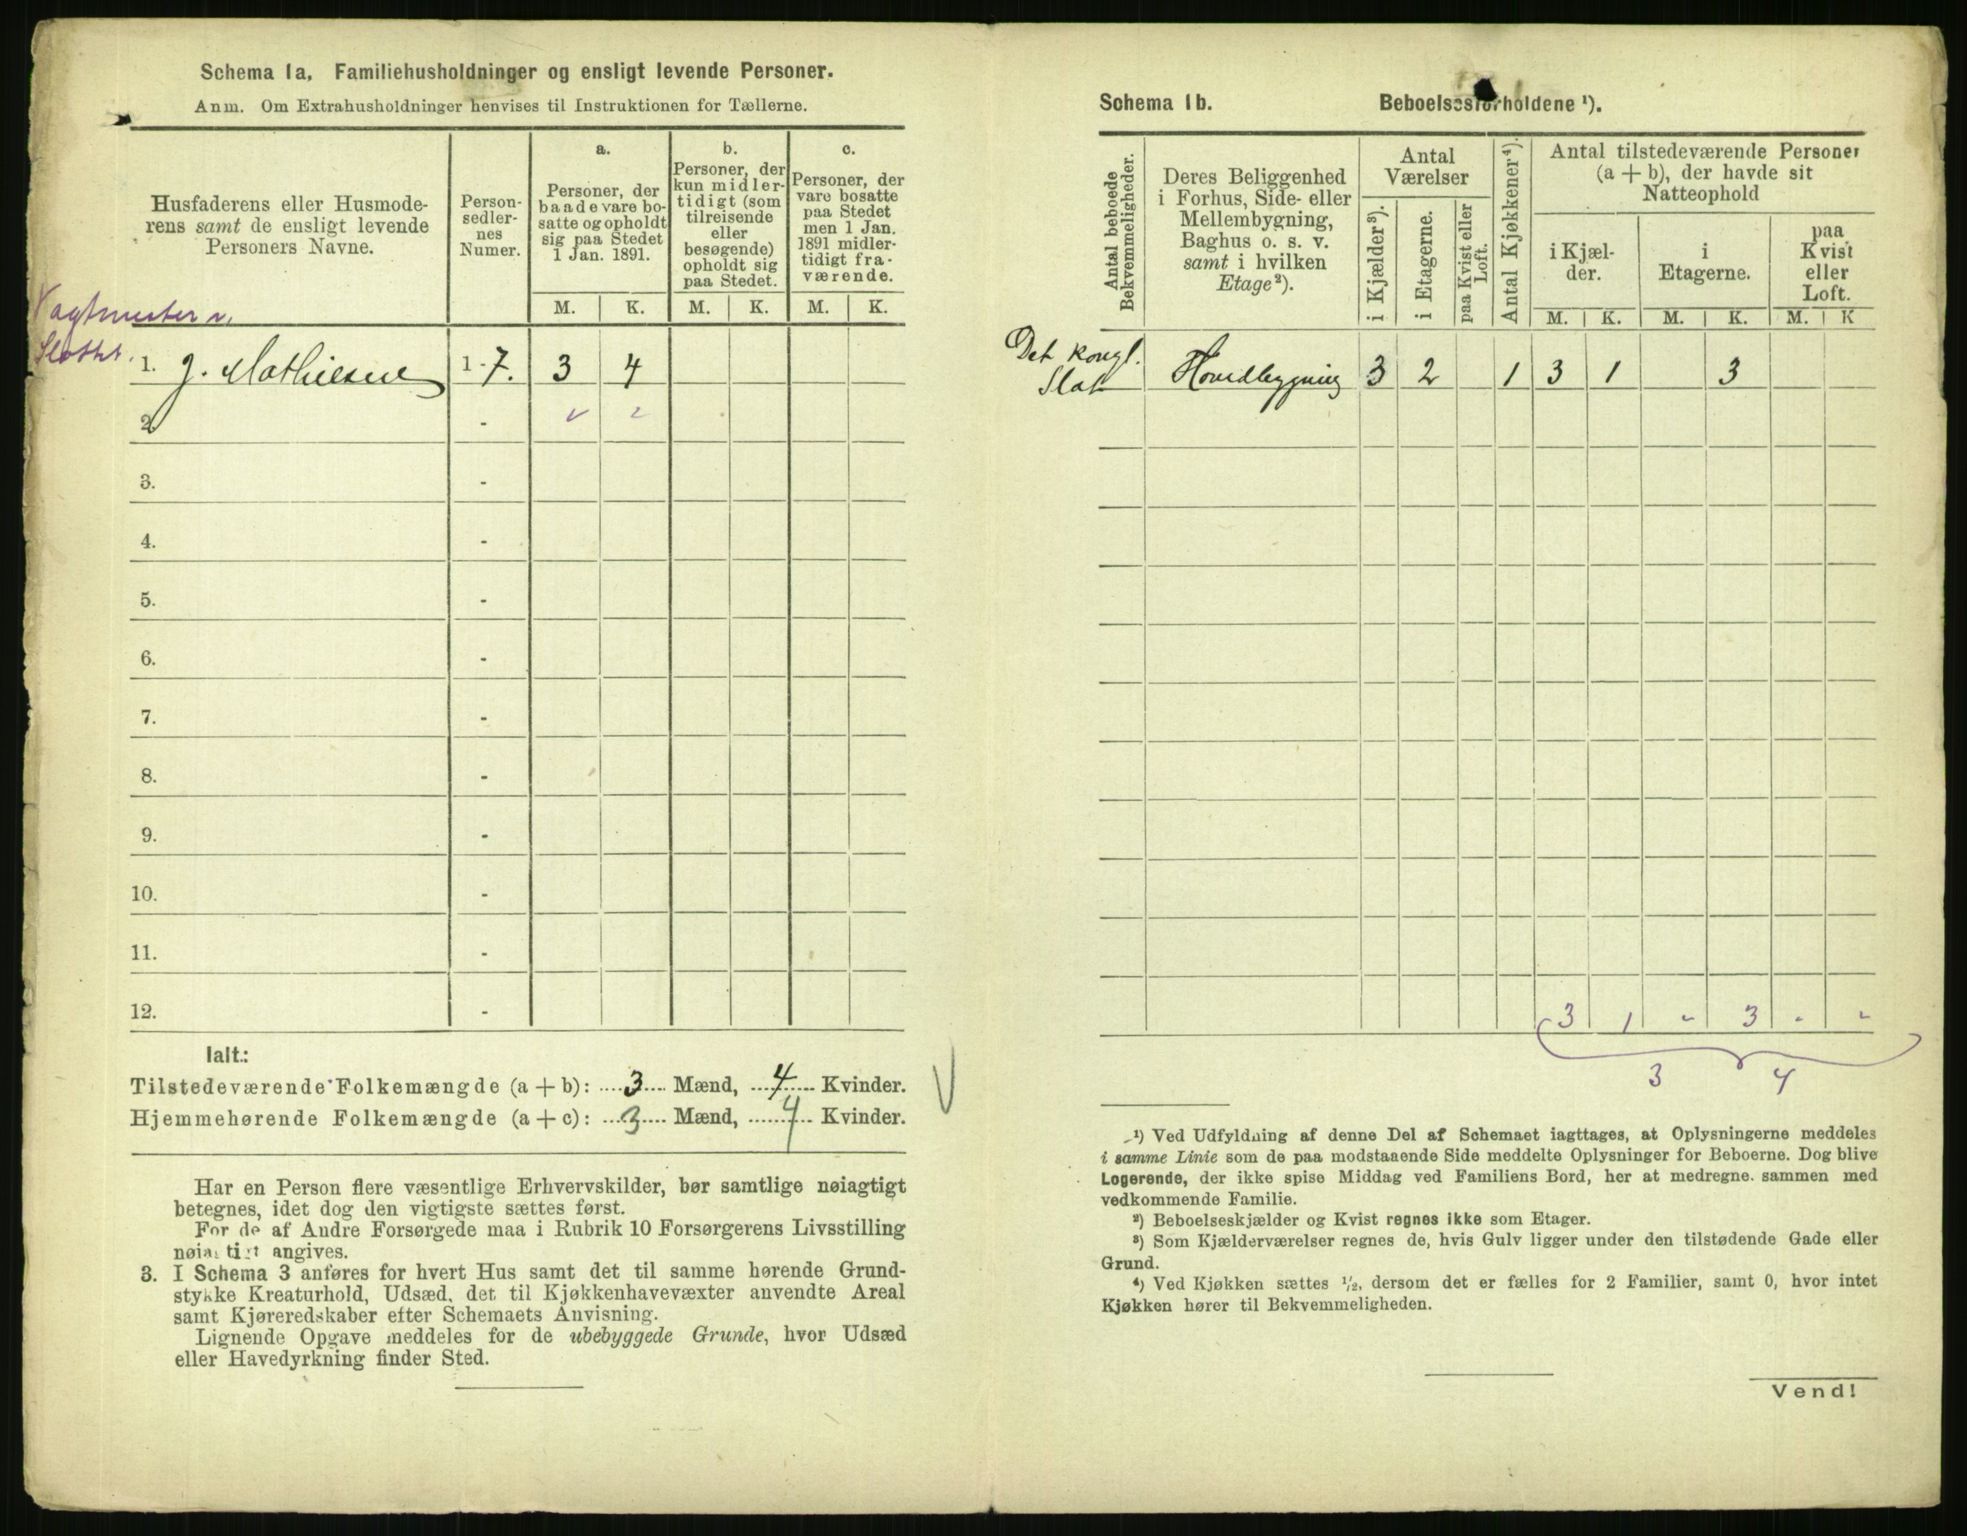 Schema 1a, Familiehusholdninger og ensligt levende Personer.
Anm. Om Extrahusholdninger henvises til Instruktionen for Tællerne.
Husfaderens eller Husmode-
rens samt de ensligt levende
Personers Navne.
Person-
sedler-
nes
Numer.
a.
Personer, der
baade vare bo-
satte og opholdt
sig paa Stedet
1 Jan. 1891.
b.
Personer, der
kun midler-
tidigt (som
tilreisende
eller
besøgende)
opholdt sig
paa Stedet.
c.
Personer, der
vare bosatte
paa Stedet
men 1 Jan.
1891 midler-
tidigt fra-
værende.
M. K. M. K. M. K.
Vagtmester v.
Slottet.
1. J. Mathiesen 1-7. 3 4
2. -
3. -
4. -
5. -
6. -
7. -
8. -
9. -
10. -
11. -
12. -
Ialt.:
Tilstedeværende Folkemængde (a + b): 3 Mænd, 4 Kvinder.
Hjemmehørende Folkemængde (a + c): 3 Mænd, 4 Kvinder.
Har en Person flere væsentlige Erhvervskilder, bør samtlige nøiagtigt
betegnes, idet dog den vigtigste sættes først.
For de af Andre Forsørgede maa i Rubrik 10 Forsørgerens Livsstilling
nøiagtigt angives.
3. I Schema 3 anføres for hvert Hus samt det til samme hørende Grund-
stykke Kreaturhold, Udsæd, det til Kjøkkenhavevæxter anvendte Areal
samt Kjøreredskaber efter Schemaets Anvisning.
Lignende Opgave meddeles for de ubebyggede Grunde, hvor Udsæd
eller Havedyrkning finder Sted.
Schema 1b. Beboelsesforholdene ¹).
Antal beboede
Bekvemmeligheder.
Deres Beliggenhed
i Forhus, Side- eller
Mellembygning,
Baghus o. s. v.
samt i hvilken
Etage²).
Antal
Værelser
i Kjælder³).
i Etagerne.
paa Kvist eller
Loft.
Antal Kjøkkener⁴).
Antal tilstedeværende Personer
(a + b), der havde sit
Natteophold
i Kjæl-
der.
i
Etagerne.
paa
Kvist
eller
Loft.
M. K. M. K. M. K
Det kongl.
Slot Hovedbygning 3 2 1 3 1 3
3 1 " 3 " "
3 4
¹) Ved Udfyldning af denne Del af Schemaet iagttages, at Oplysningerne meddeles
i samme Linie som de paa modstaaende Side meddelte Oplysninger for Beboerne. Dog blive
Logerende, der ikke spise Middag ved Familiens Bord, her at medregne sammen med
vedkommende Familie.
²) Beboelseskjælder og Kvist regnes ikke som Etager.
³) Som Kjælderværelser regnes de, hvis Gulv ligger under den tilstødende Gade eller
Grund.
⁴) Ved Kjøkken sættes ½, dersom det er fælles for 2 Familier, samt 0, hvor intet
Kjøkken hører til Bekvemmeligheden.
Vend!